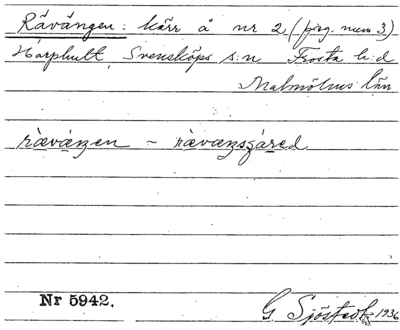 Rävången: kärr å nr 2 (förg. num 3)
Harphult, Svensköps s:n Frosta h:d
Malmöhus län
rävången ~ rävångsgåred
Nr 5942.
G Sjöstedt 1936